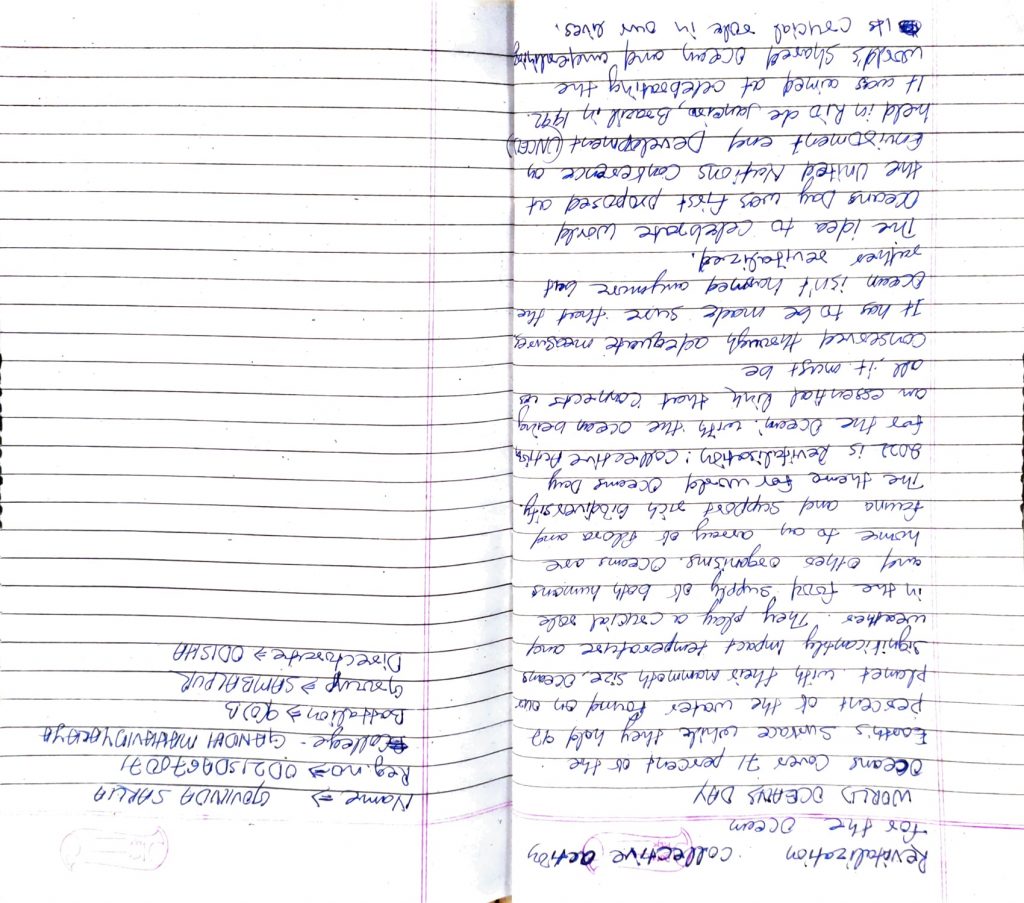 Revitalization collective action
for the Ocean
WORLD OCEANS DAY
Oceans Covers 71 percent of the
Earth's surface while they hold 97
percent of the water found on our
planet with their mammoth size, Oceans
significantly impact temperature and
weather. They play a crucial role
in the food supply of both humans
and other organisms. Oceans are
home to an array of flora and
fauna and support rich biodiversity.
The theme for world Oceans Day
2022 is Revitalisation: Collective Action
for the Ocean'. with the ocean being
an essential link that connects us
all, it must be
conserved through adequate measures
It has to be made sure that the
Ocean isn't harmed anymore but
rather revitalized.
The idea to celebrate world
Oceans Day was first proposed at
the United Nations Conference on
Environment and Development (UNCED)
held in Rio de Janeiro, Brazil in 1992.
It was aimed at celebrating the
world's shared Ocean and underlining
its crucial role in our lives.
Name ⇒ GOVINDA SAPUA
Reg.no ⇒ OD21SDA670071
College - GANDHI MAHAVIDYALAYA
Battalion ⇒ 9(O)B
Group ⇒ SAMBALPUR
Directorate ⇒ ODISHA